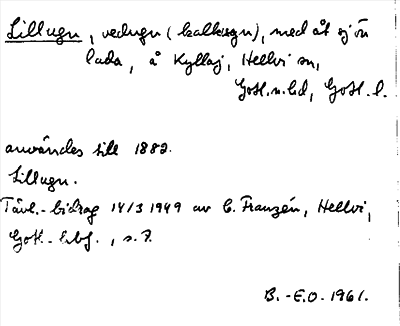 Lillugn, vedugn (kalkugn), med åt
lada, å Kyllaj, Hellvi sn,
Gotl. n. hd, Gotl. l.
användes till 1883.
Lillugn.
Tävl.-bidrag 14/3 1949 av C. Franzén, Hellvi,
Gotl. , s. 7.
B.-E.O. 1961.